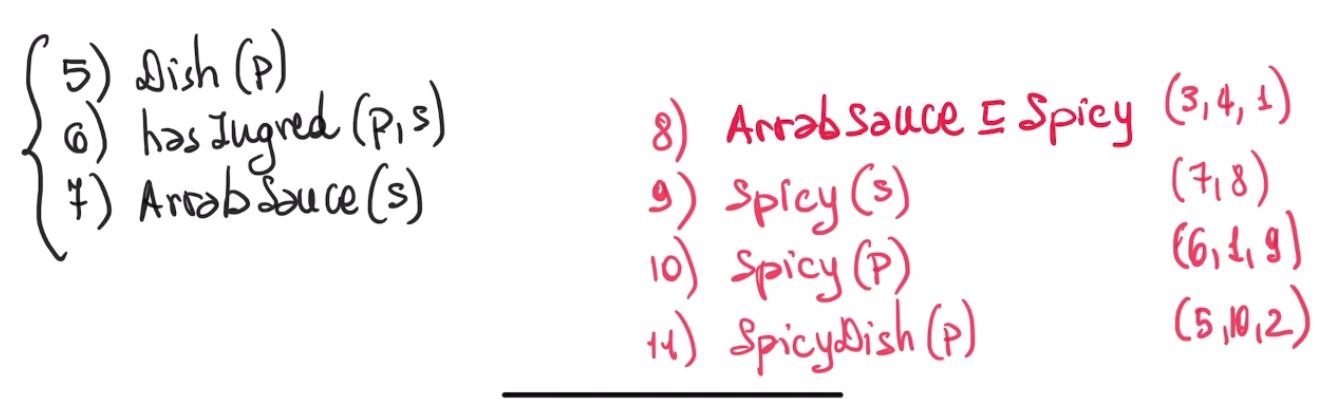 5) Dish (p)
6) hasIngred (p, s)
7) ArrabSauce (s)
8) ArrabSauce ⊑ Spicy (3, 4, 1)
9) Spicy (s) (7, 8)
10) Spicy (p) (6, 1, 9)
11) SpicyDish (p) (5, 10, 2)